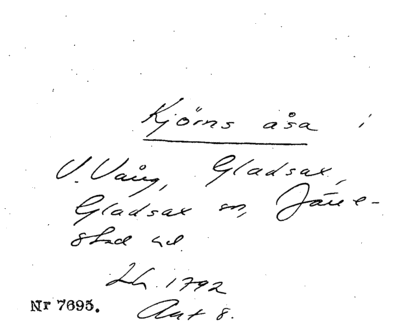 Kjörns åsa i
V. Vång, Gladsax,
Gladsax sn, Järre-
stad hd.
Lh. 1792
Akt 8.
Nr 7695.